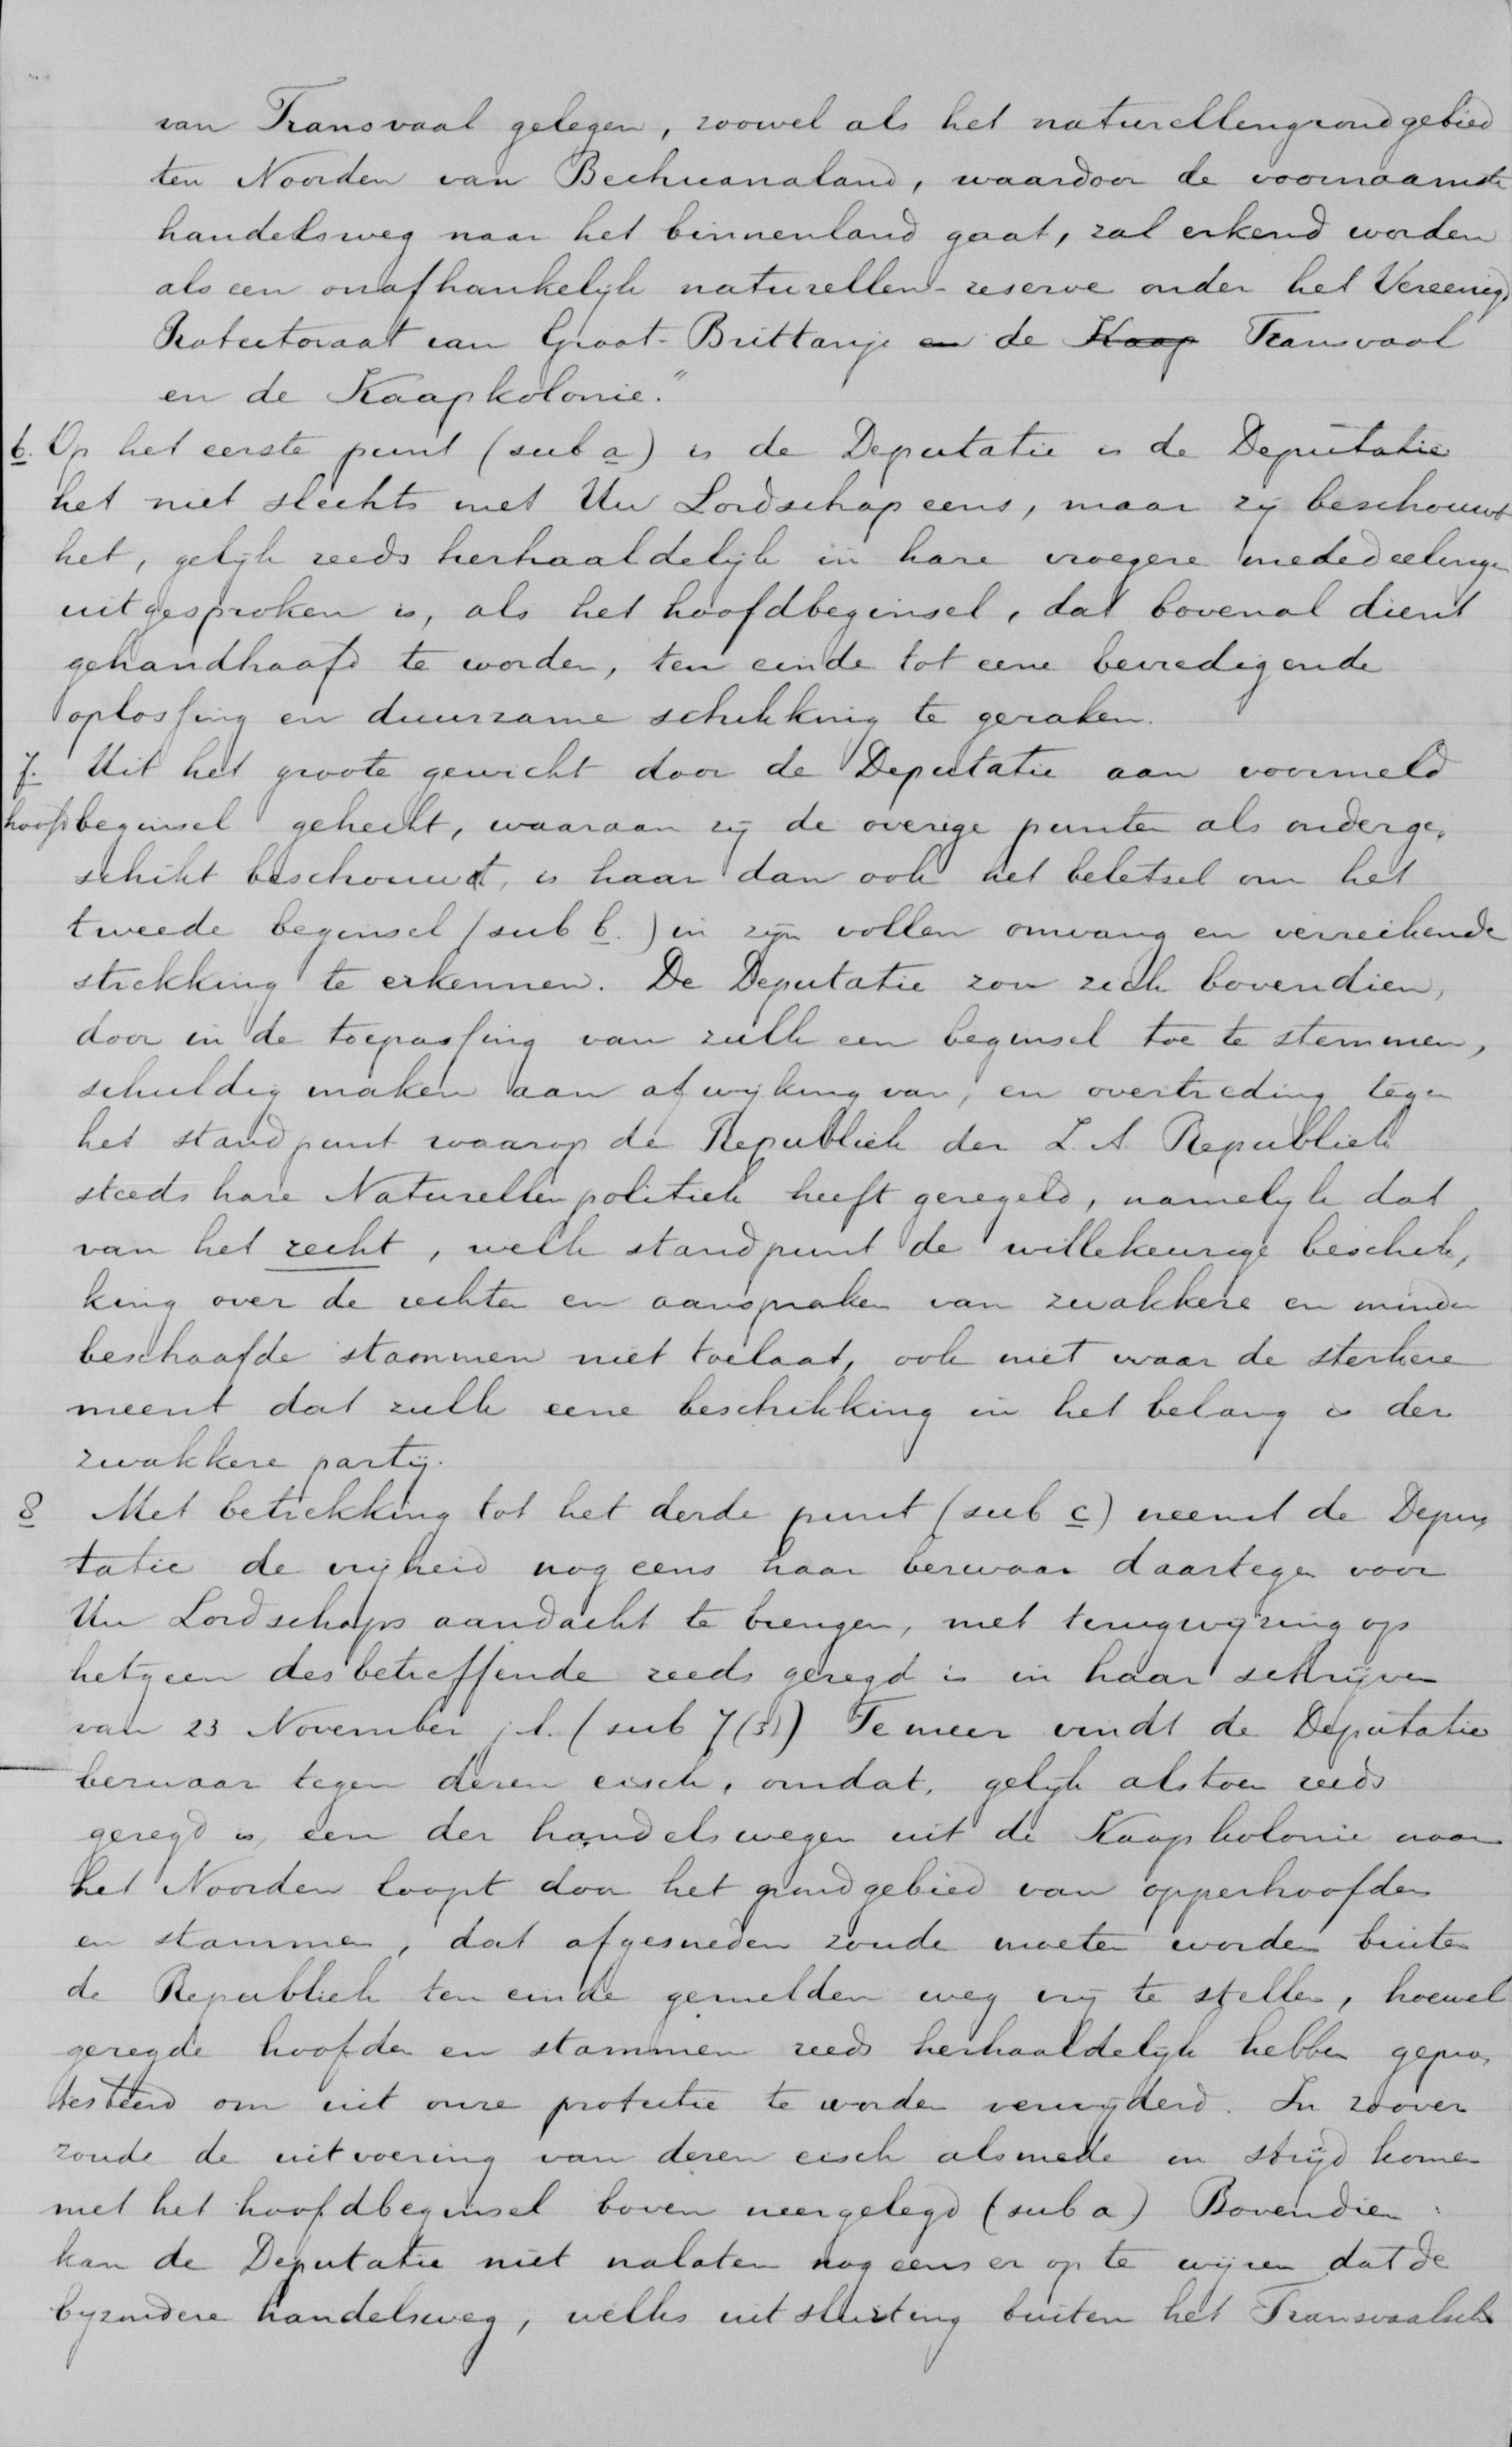 van Transvaal gelegen, zoowel als het naturellengrondgebied
ten Noorden van Bechuanaland, waardoor de voornaamste
handelsweg naar het binnenland gaat, zal erkend worden
als een onafhankelijk naturellen-reserve onder het Vereenigd
Protectoraat van Groot-Brittanje en de Kaap Transvaal
en de Kaapkolonie."
6. Op het eerste punt (sub a) is de Deputatie is de Deputatie
het niet slechts met Uw Lordschap eens, maar zij beschouwt
het, gelijk reeds herhaaldelijk in hare vroegere mededeelingen
uitgesproken is, als het hoofdbeginsel, dat bovenal dient
gehandhaafd te worden, ten einde tot eene bevredigende
oplossing en duurzame schikking te geraken.
7. Uit het groote gewicht door de Deputatie aan voormeld
hoofdbeginsel gehecht, waaraan zij de overige punten als onderge-
schikt beschouwt, is haar dan ook het beletsel om het
tweede beginsel (sub b.) in zijn vollen omvang en verreikende
strekking te erkennen. De Deputatie zou zich bovendien,
door in de toepassing van zulk een beginsel toe te stemmen,
schuldig maken aan afwijking van, en overtreding tegen
het standpunt waarop de Republiek der Z. A. Republiek
steeds hare Naturellen politiek heeft geregeld, namelijk dat
van het recht, welk standpunt de willekeurige beschik-
king over de rechten en aanspraken van zwakkere en minder
beschaafde stammen niet toelaat, ook niet waar de sterkere
meent dat zulk eene beschikking in het belang is der
zwakkere partij.
8 Met betrekking tot het derde punt (sub c) neemt de Depu-
tatie de vrijheid nog eens haar bezwaar daartegen voor
Uw Lordschaps aandacht te brengen, met terugwijzing op
hetgeen desbetreffende reeds gezegd is in haar schrijven
van 23 November j.l. (sub 7(3)) Te meer vindt de Deputatie
bezwaar tegen dezen eisch, omdat, gelijk alstoen reeds
gezegd is, een der handelswegen uit de Kaapkolonie naar
het Noorden loopt door het grondgebied van opperhoofden
en stammen, dat afgesneden zoude moeten worden buiten
de Republiek ten einde gemelden weg vrij te stellen, hoewel
gezegde hoofden en stammen reeds herhaaldelijk hebben gepro-
testeerd om uit onze protectie te worden verwijderd. In zoover
zoude de uitvoering van dezen eisch alsmede in strijd komen
met het hoofdbeginsel boven neergelegd (sub a) Bovendien
kan de Deputatie niet nalaten nog eens er op te wijzen dat de
byzondere handelsweg, welks uitsluiting buiten het Transvaalsch